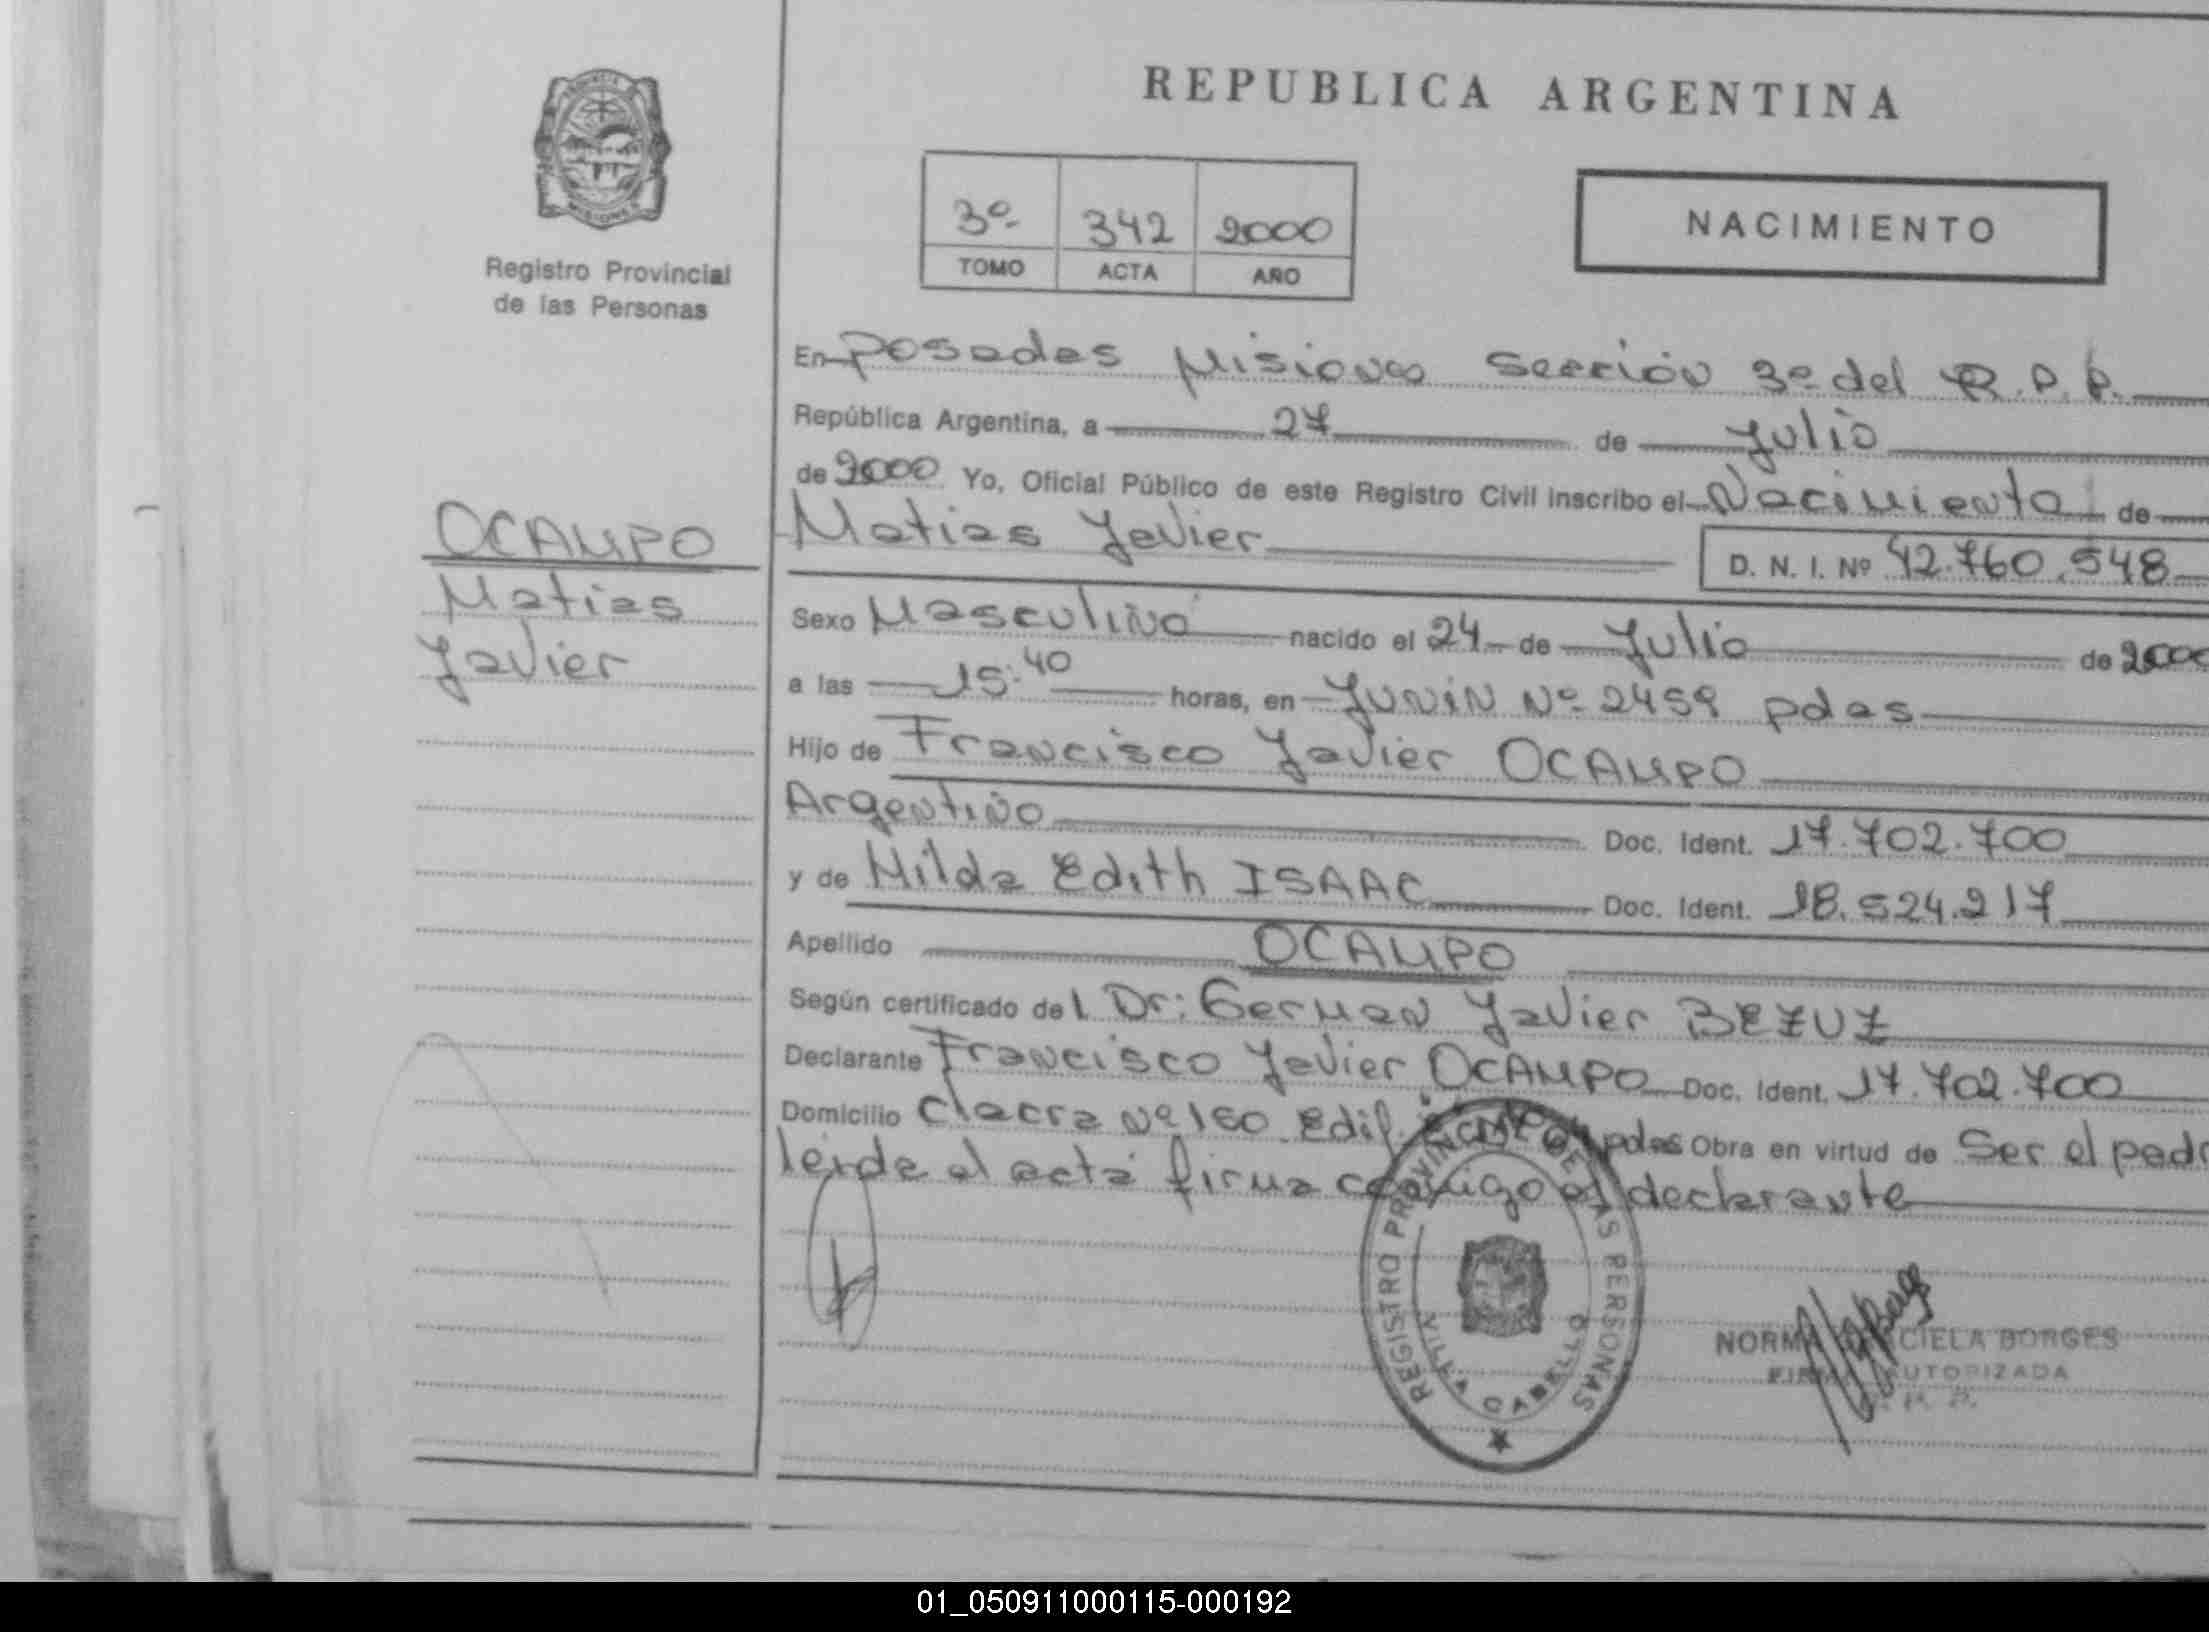 REPUBLICA ARGENTINA
PROVINCIA
MISIONES
Registro Provincial
de las Personas
3º 342 2000
TOMO ACTA AÑO
NACIMIENTO
OCAMPO
Matias
Javier
En Posadas Misiones Sección 3º del R.P.P.
República Argentina, a 27 de Julio
de 2000 Yo, Oficial Público de este Registro Civil inscribo el Nacimiento de
Matias Javier
D. N. I. Nº 42.760.548
Sexo Masculino nacido el 24 de Julio de 2000
a las 15:40 horas, en Junín Nº 2459 pdas
Hijo de Francisco Javier OCAMPO
Argentino Doc. Ident. 17.702.700
y de Nilda Edith ISAAC Doc. Ident. 18.524.217
Apellido OCAMPO
Según certificado del Dr: German Javier BEZUZ
Declarante Francisco Javier OCAMPO Doc. Ident. 17.702.700
Domicilio Chacra Nº 180 Edif. pdas Obra en virtud de Ser el padr
leida el acta firma conmigo el declarante
REGISTRO PROVINCIAL DE LAS PERSONAS
VILLA CABELLO
NORMA GRACIELA BORGES
FIRMA AUTORIZADA
01_050911000115-000192